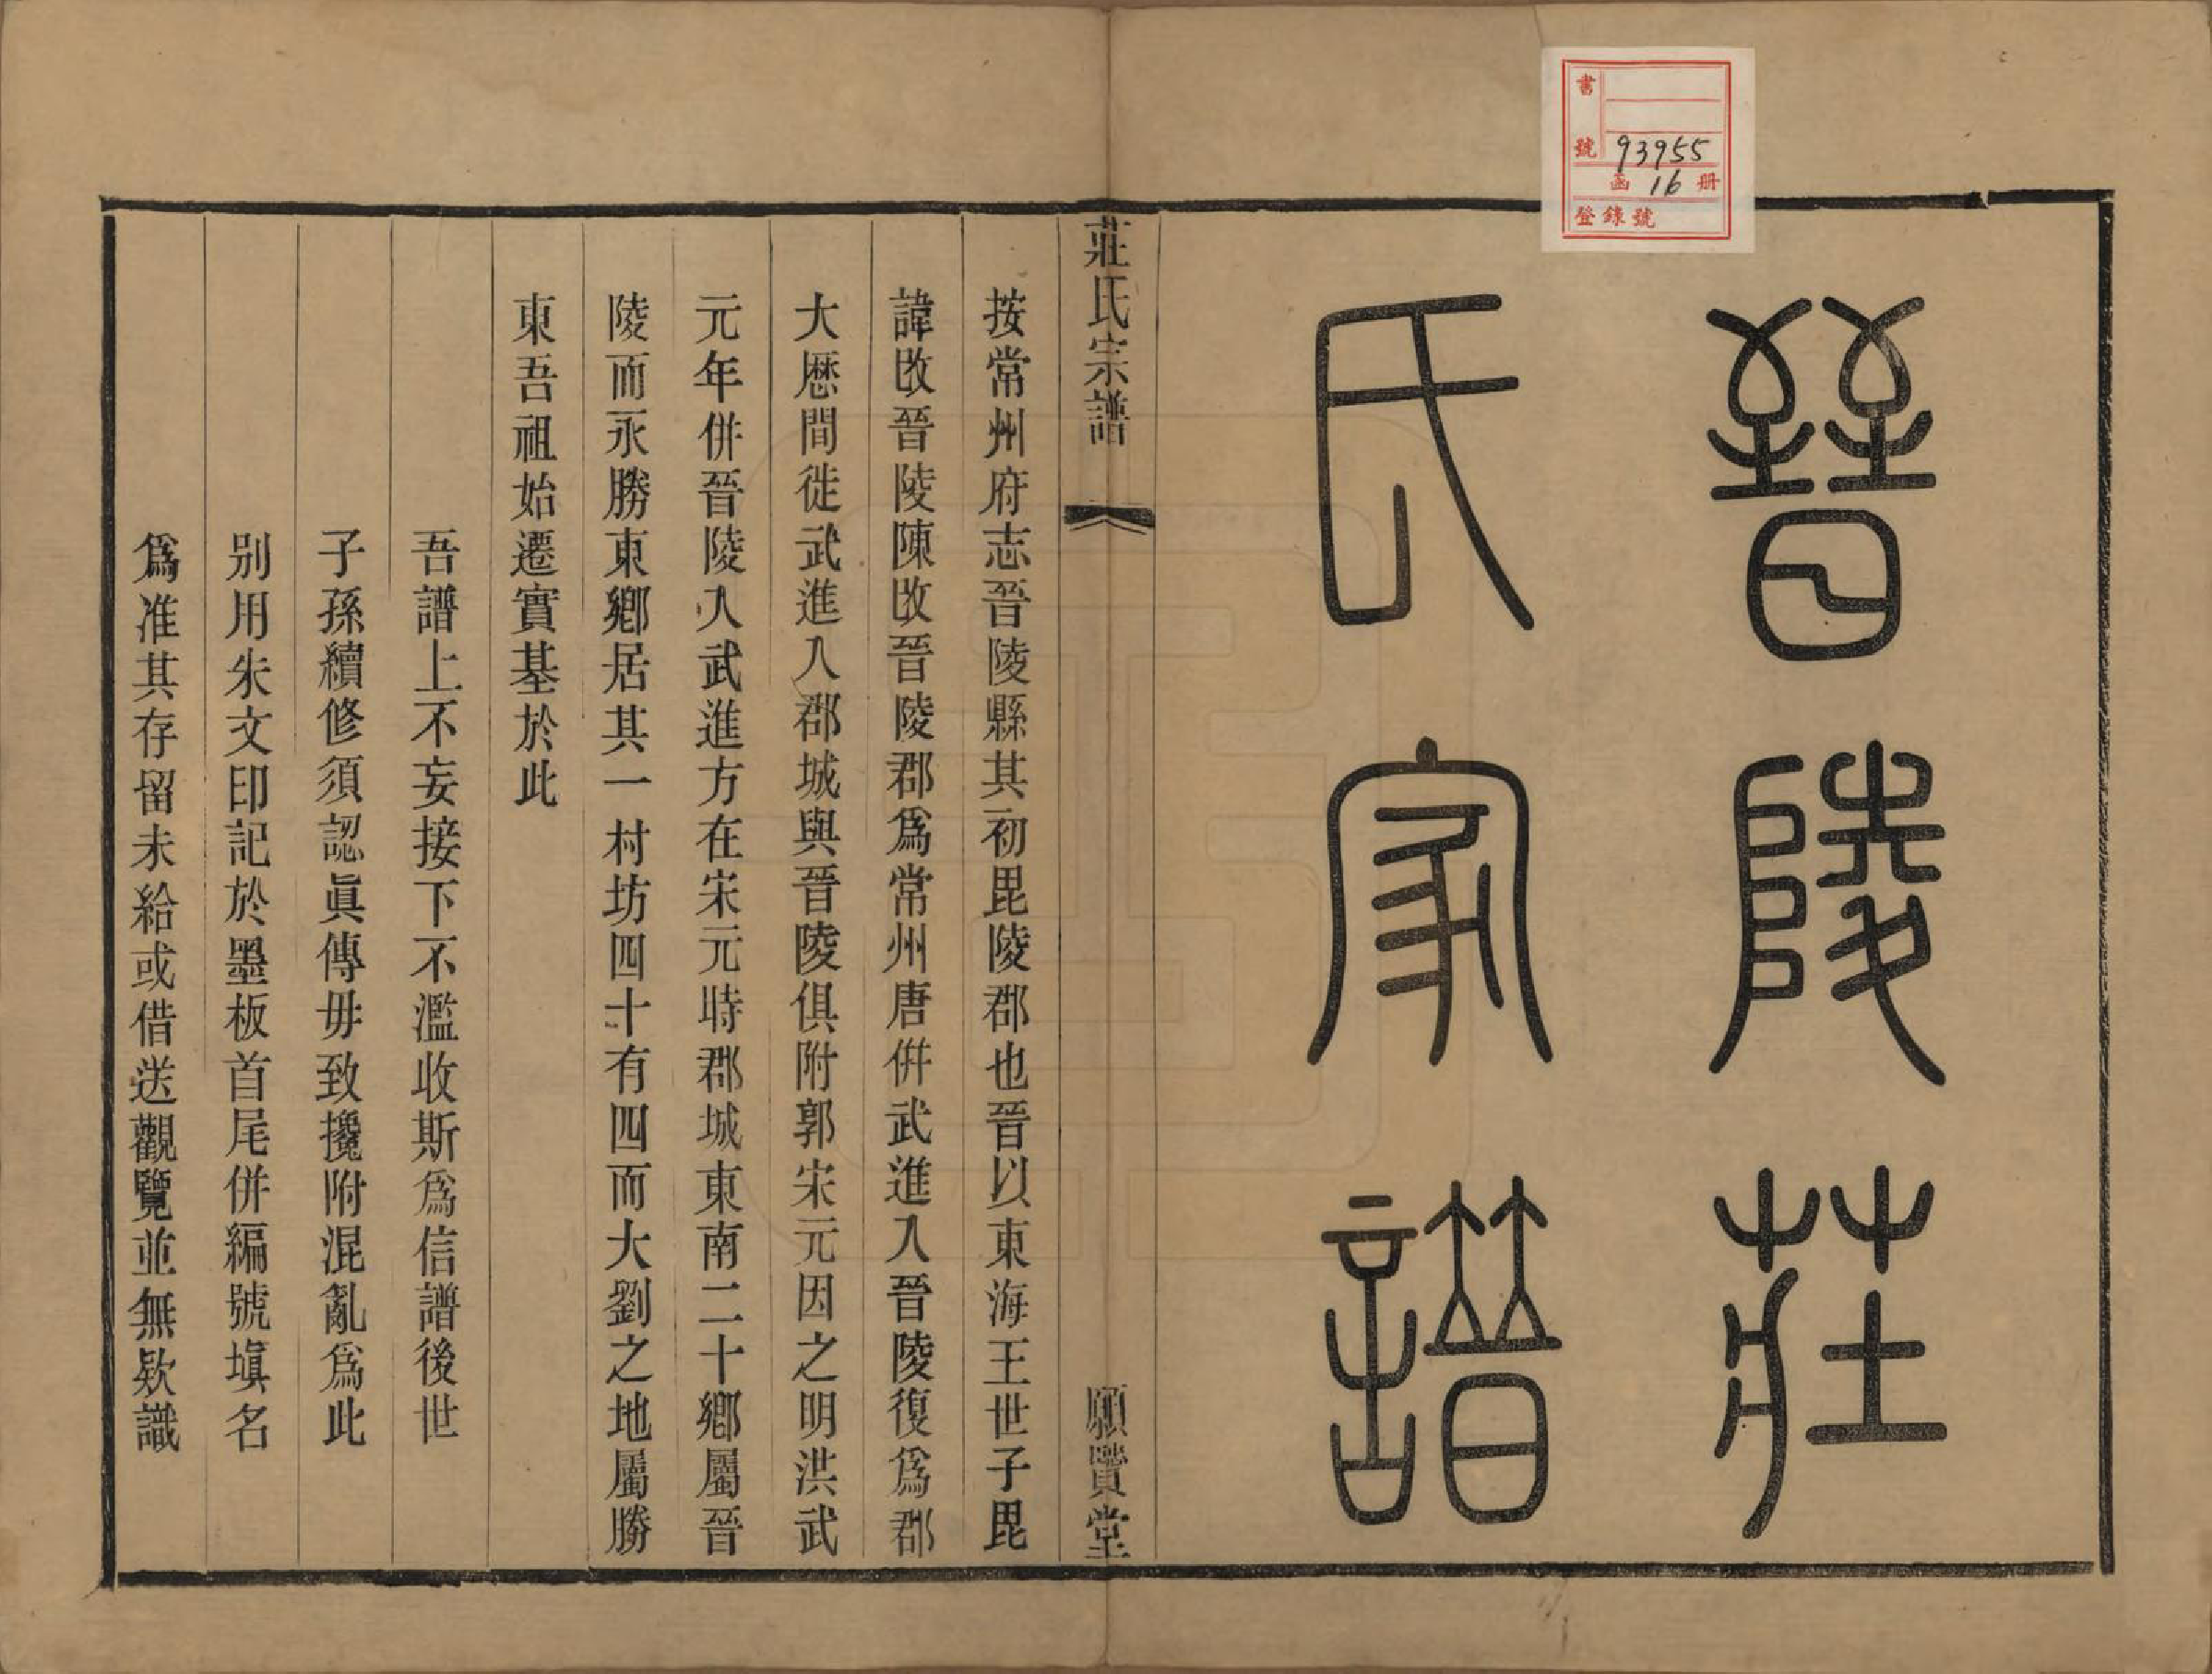 晉陵莊
氏家譜
書號 93955
函 16 册
登錄號
莊氏宗譜 願賢堂
按常州府志晉陵縣其初毘陵郡也晉以東海王世子毘
諱改晉陵陳改晉陵郡爲常州唐併武進入晉陵復爲郡
大厯間徙武進入郡城與晉陵俱附郭宋元因之明洪武
元年併晉陵入武進方在宋元時郡城東南二十鄉屬晉
陵而永勝東鄉居其一村坊四十有四而大劉之地屬勝
東吾祖始遷實基於此
吾譜上不妄接下不濫收斯爲信譜後世
子孫續修須認眞傳毋致攙附混亂爲此
别用朱文印記於墨板首尾併編號塡名
爲准其存留未給或借送觀覽並無欵識